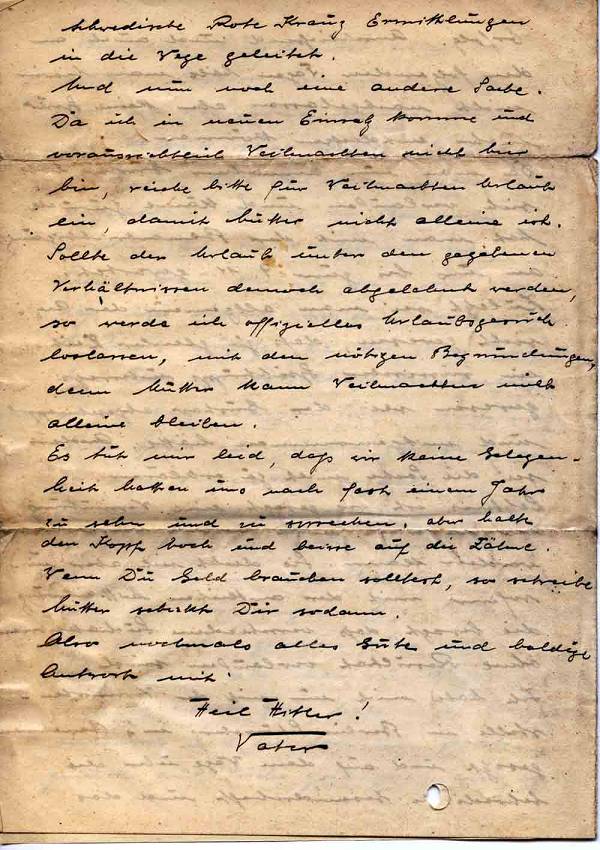 schwedische Rote Kreuz Ermittlungen
in die Wege geleitet.
Und nun noch eine andere Sache.
Da ich in neuen Einsatz komme und
voraussichtlich Weihnachten nicht hier
bin, reiche bitte für Weihnachten Urlaub
ein, damit Mutter nicht alleine ist.
Sollte der Urlaub unter den gegebenen
Verhältnissen dennoch abgelehnt werden,
so werde ich offizielles Urlaubsgesuch
loslassen, mit den nötigen Begründungen,
denn Mutter kann Weihnachten nicht
alleine bleiben.
Es tut mir leid, daß wir keine Gelegen-
heit hatten uns nach fast einem Jahr
zu sehn und zu sprechen, aber halte
den Kopf hoch und beisse auf die Zähne.
Wenn Du Geld brauchen solltest, so schreibe
Mutter schickt Dir sodann.
Also nochmals alles Gute und baldige
Antwort mit
Heil Hitler!
Vater